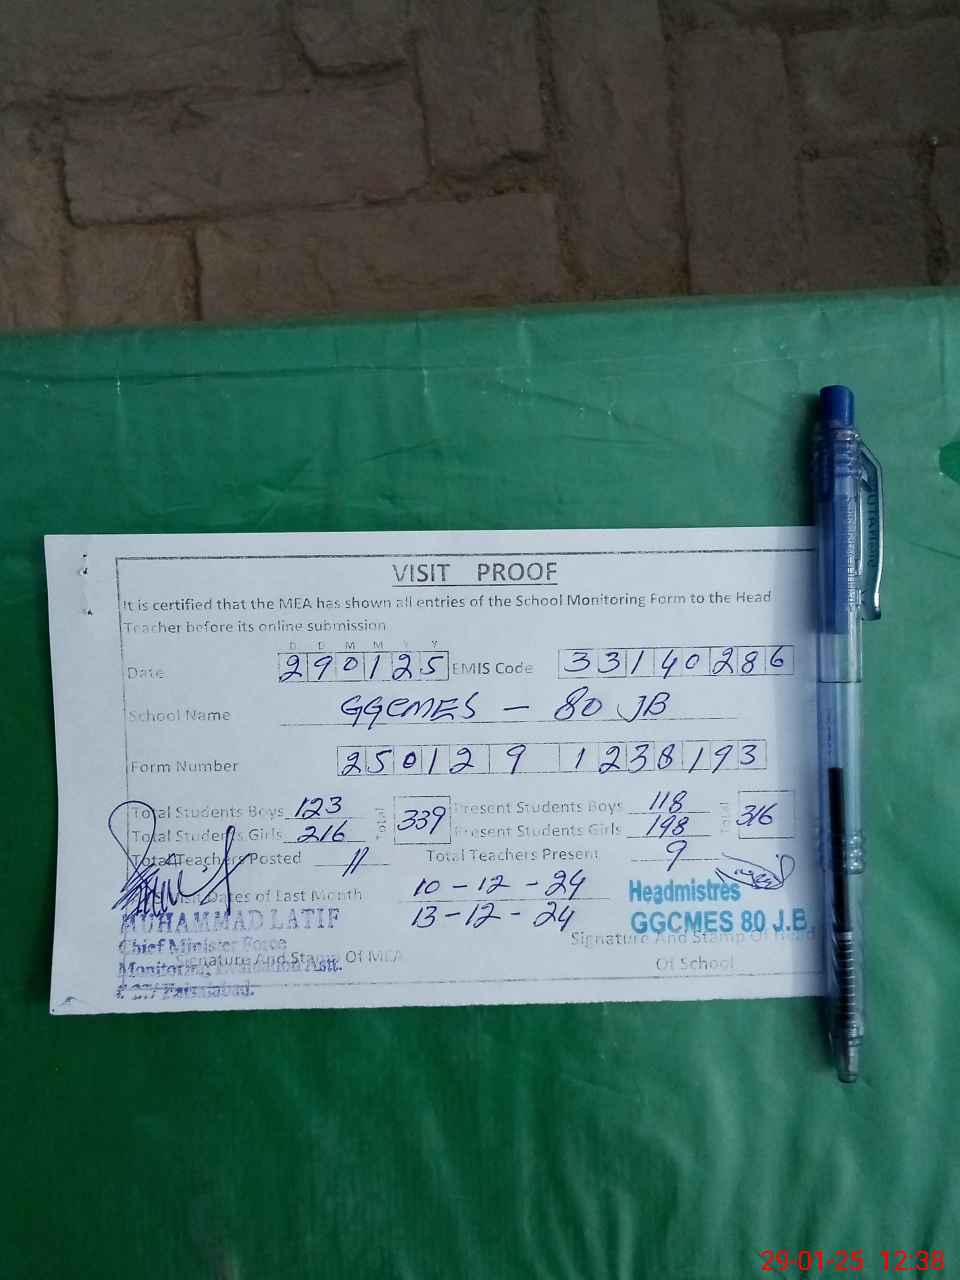 VISIT PROOF
It is certified that the MEA has shown all entries of the School Monitoring Form to the Head
Teacher before its online submission
D D M M Y Y
Date 290125 EMIS Code 33140286
School Name GGCMES - 80 JB
Form Number 250129 1238193
Total Students Boys 123 Total 339 Present Students Boys 118 Total 316
Total Students Girls 216 Present Students Girls 198
Total Teachers Posted 11 Total Teachers Present 9
Visit Dates of Last Month 10-12-24
13-12-24
MUHAMMAD LATIF
Chief Minister Force
Monitoring Evaluation Astt.
Faisalabad.
Signature And Stamp Of MEA
Headmistres
GGCMES 80 J.B
Signature And Stamp Of Head
Of School
29-01-25 12:38